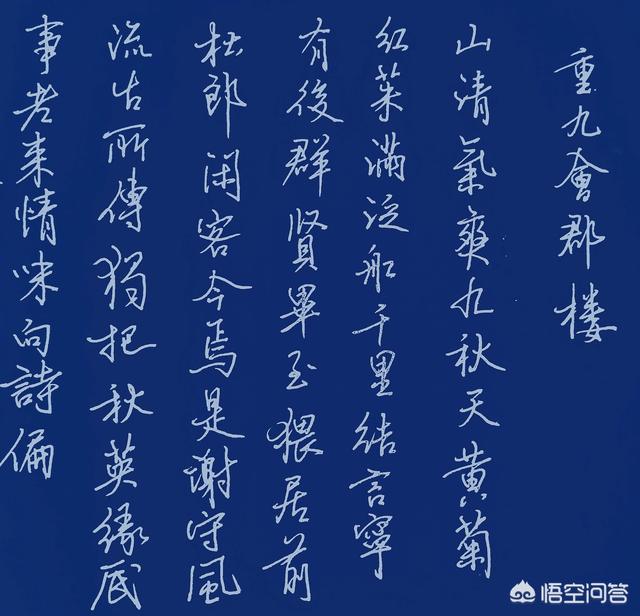 重九會郡楼
山清氣爽九秋天黄菊
红茱滿泛船千里结言寧
有後群賢畢至猥居前
杜郎闲客今焉是谢守風
流古所傳獨把秋英缘底
事老来情味向詩偏
悟空问答